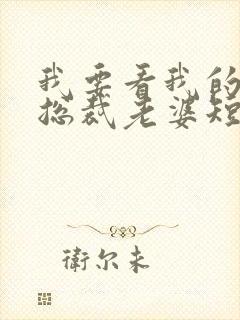 我要看我的
总裁老婆短
衛尔未